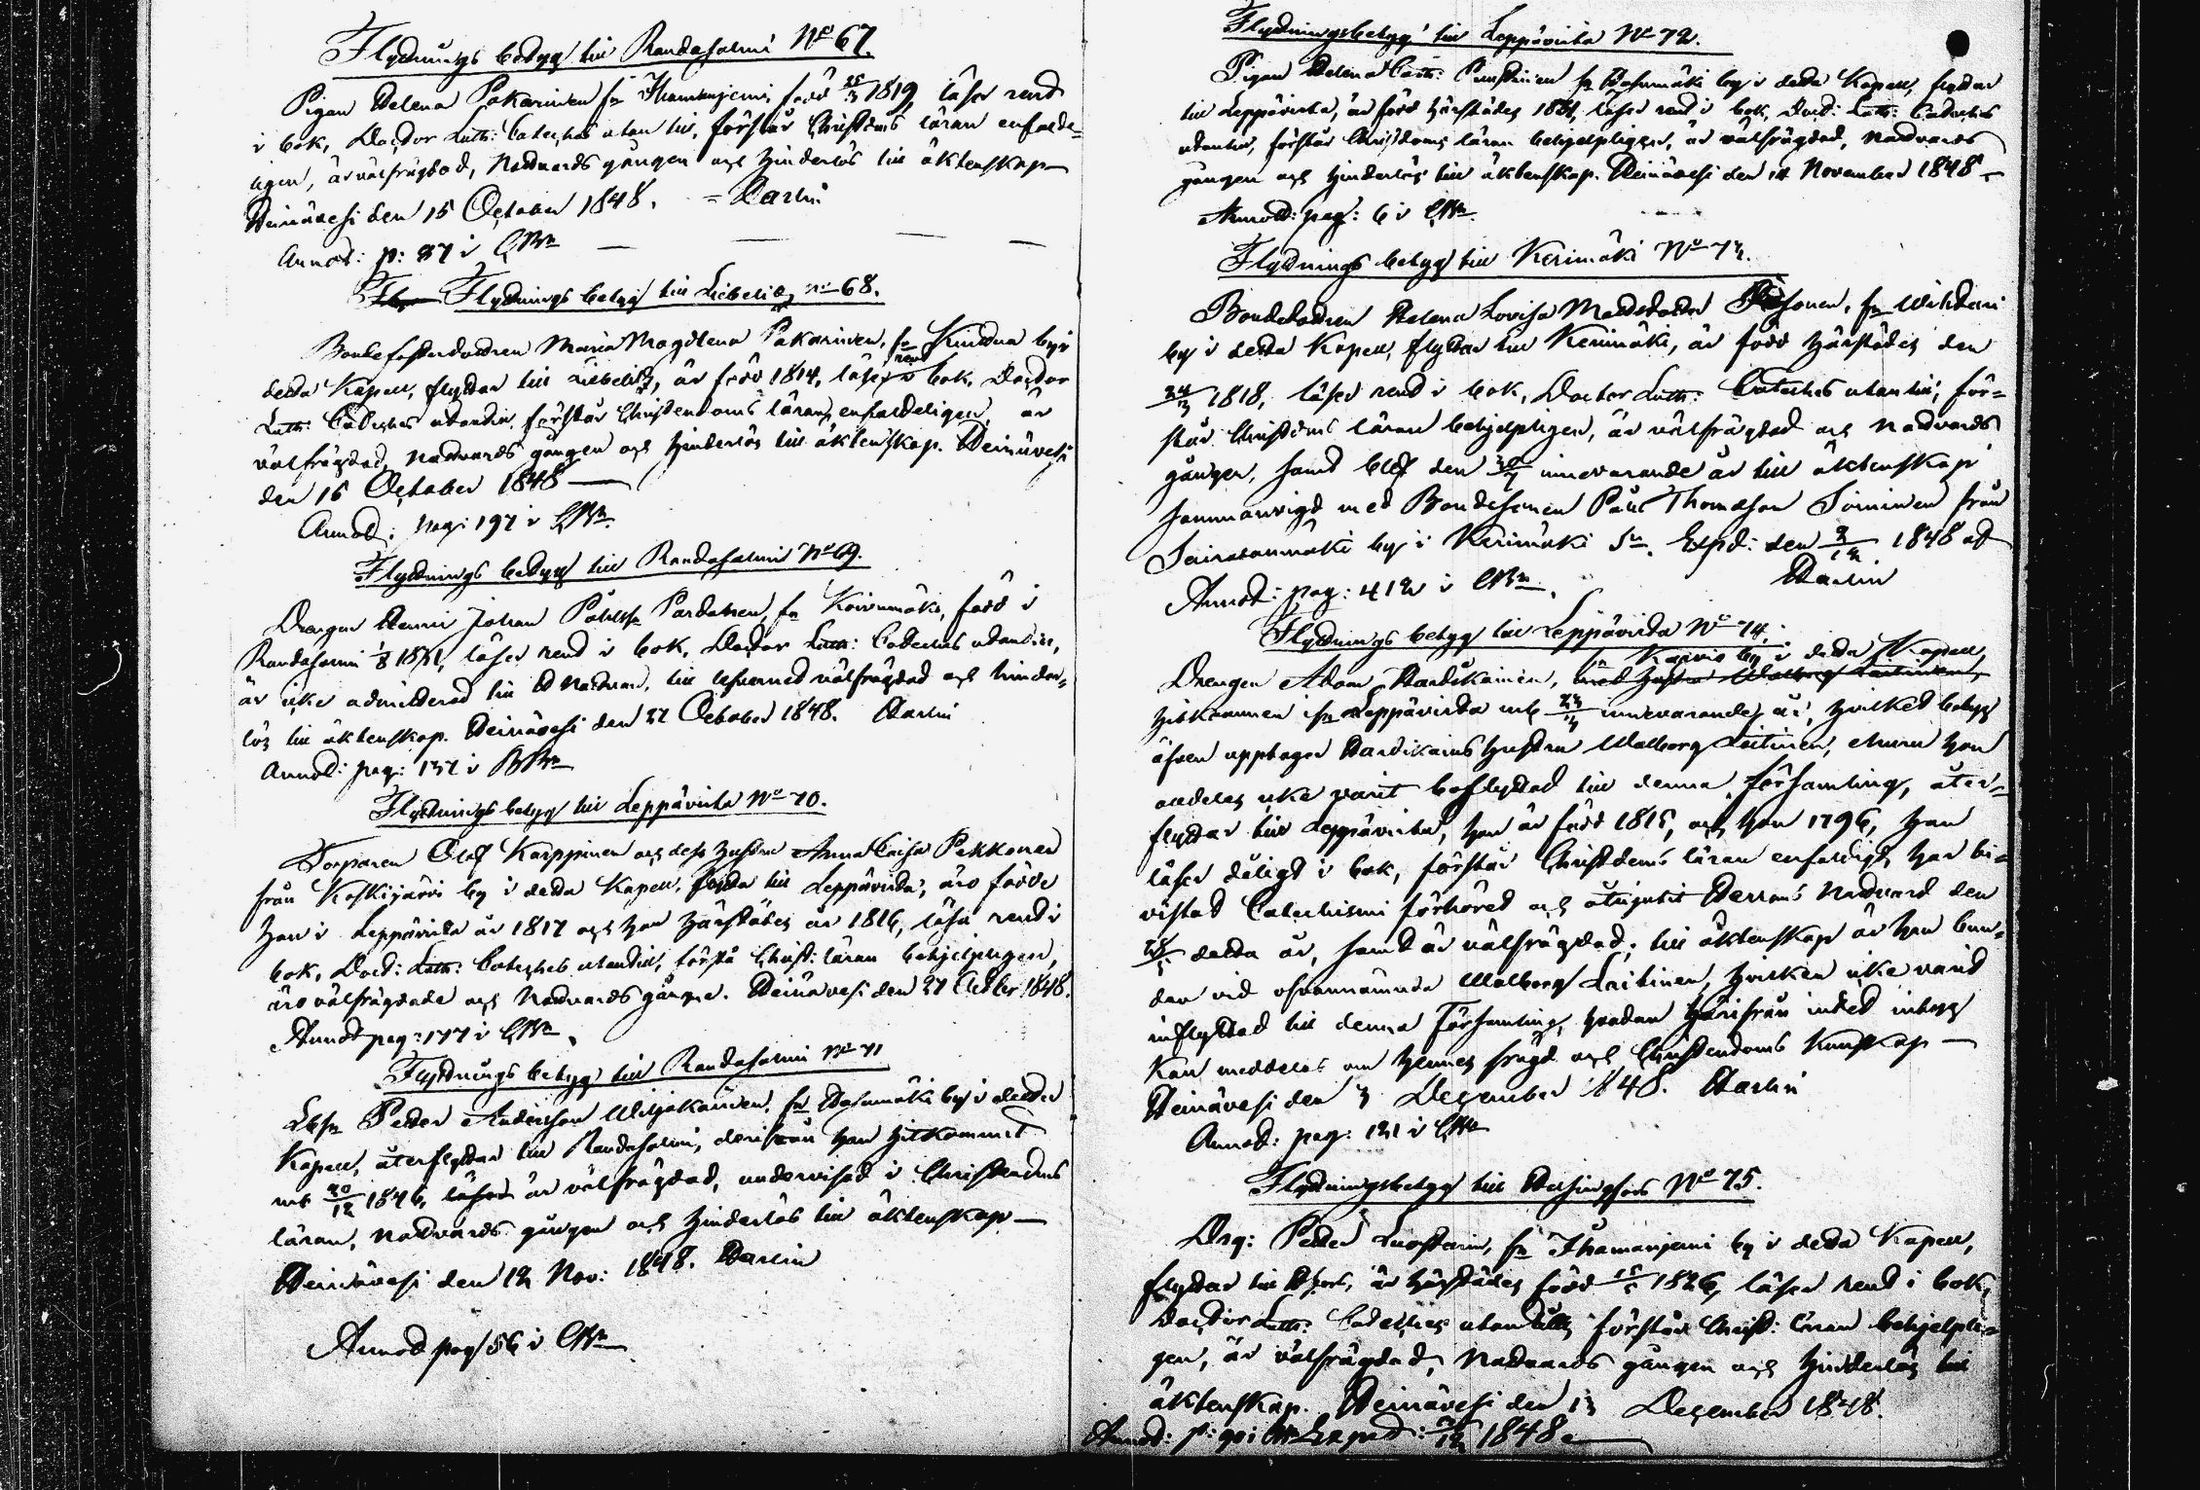 Flyttnings betyg till Randasalmi No 67.
Pigan Helena Pakarinen fr. Ihamanjemi, född 25/3 1819, läser rent
i bok, Doctor Luth: Cateches utan till, förstår Christdoms läran enfalde-
ligen, är välfrägdad, Nattvards gången och hinderlös till äktenskap
Heinävesi den 15 October 1848. Harlin
Annot: p: 87 i CBn
Flyttnings betyg till Libelitz No 68.
Bondefosterdottren Maria Magdlena Pakarinen, fr. by i
detta Kapell, flyttar till Libelitz, är född 1814, läser rent i bok, Doctor
Luth: Cateches utantill, förstår Christendoms läran enfaldeligen, är
välfrägdad, nattvards gången och hinderlös till äktenskap. Heinävesi
den 16 October 1848
Annot: pag: 197 i CBn.
Flyttnings betyg till Randasalmi No 69.
Drengen Henric Johan Påhlss. Pardanen, fr. Koivumäki, född i
Randasalmi läser rent i bok, Doctor Luth: Cateches utantill,
är icke admitterad till H Nattvard, till välfrägdad och hinder-
lös till äktenskap. Heinävesi den 22 October 1848. Harlin
Annot: pag: 137 i BBn
Flyttnings betyg till Leppävirta No 70.
Torparen Olof Karppinen och dess hustru Anna Caisa Pekkonen
från Koskijärvi by i detta Kapell, flytta till Leppävirta, äro födde
han i Leppävirta år 1817 och hon härstädes år 1816, läsa rent i
bok, Doct: Luth: Cateches utantill, förstå Christ: läran behjelpligen,
äro välfrägdade och Nattvards gångne. Heinävesi den 27 Octber 1848.
Annot pag: 177 i CBn.
Flyttnings betyg till Randasalmi No 71
Petter Andersson Wiljakainen, fr. Hasumäki by i detta
Kapell, återflyttar till Randasalmi, derifrån han hitkommit
mb 20/12 1846, är välfrägdad, undervisad i Christendoms
läran, nattvards gången och hinderlös till äktenskap
Heinävesi den 12 Nov: 1848. Harlin
Annot pag 56 i CBn
Flyttningsbetyg till Leppävirta No 72.
Pigan Helena Cath: fr. Hasumäki by i detta Kapell, flyttar
till Leppävirta, är född härstädes läser rent i bok, Doct: Luth: Cateches
utantill, förstår Christdoms läran behjelpligen, är välfrägdad, Nattvards
gången och hinderlös till äktenskap. Heinävesi den November 1848
Annot: pag: 6 i CBn.
Flyttnings betyg till Kerimäki No 73.
Bondedottren Helena Lovisa Mattsdotter fr. Wihtari
by i detta Kapell, flyttar till Kerimäki, är född härstädes den
24/3 1818, läser rent i bok, Doctor Luth: Cateches utantill, för-
står Christdoms läran behjelpligen, är välfrägdad och nattvards
gången, samt blef den innevarande år till äktenskap
sammanvigd med Bondesonen Påul Thomasson Toivinen från
by i Kerimäki Sn. Exped: den 2/12 1848 af
Annot: pag: 412 i CBn. Harlin
Flyttnings betyg till Leppävirta No 74.
fr. Karvio by i detta Kapell,
Drengen Adam Hardikainen,
hitkommen fr. Leppävirta mb innevarande år, hvilket betyg
äfven upptager Hardikains hustru Walborg Laitinen, ehuru hon
aldeles icke varit beflyttad till denna församling, åter-
flyttar till Leppävirta, han är född 1815, och hon 1796, han
läser dåligt i bok, förstår Christdoms läran enfaldigt, har bi-
vistat Catechismi förhöret och åtnjutit Herrans Nattvard den
detta år, samt är välfrägdad; till äktenskap är han bun-
den vid ofvannämnda Walborg Laitinen, hvilken icke varit
inflyttad till denna Församling, hvadan härifrån intet intyg
kan meddelas om hennes frägd och Christendoms kunskap
Heinävesi den 3 December 1848. Harlin
Annot: pag: 131 i CBn
Flyttningsbetyg till Helsingfors No 75.
Drg: Petter Luostarin, fr. Ihamanjemi by i detta Kapell,
flyttar till Hfors, är härstädes född 1826, läser rent i bok,
Doctor Luth: Cateches utantill, förstår Christ: läran behjelpli-
gen, är välfrägdad, Nattvards gången och hinderlös till
äktenskap. Heinävesi den 13 December 1848.
Annot: p: 90 i Exped: 1848